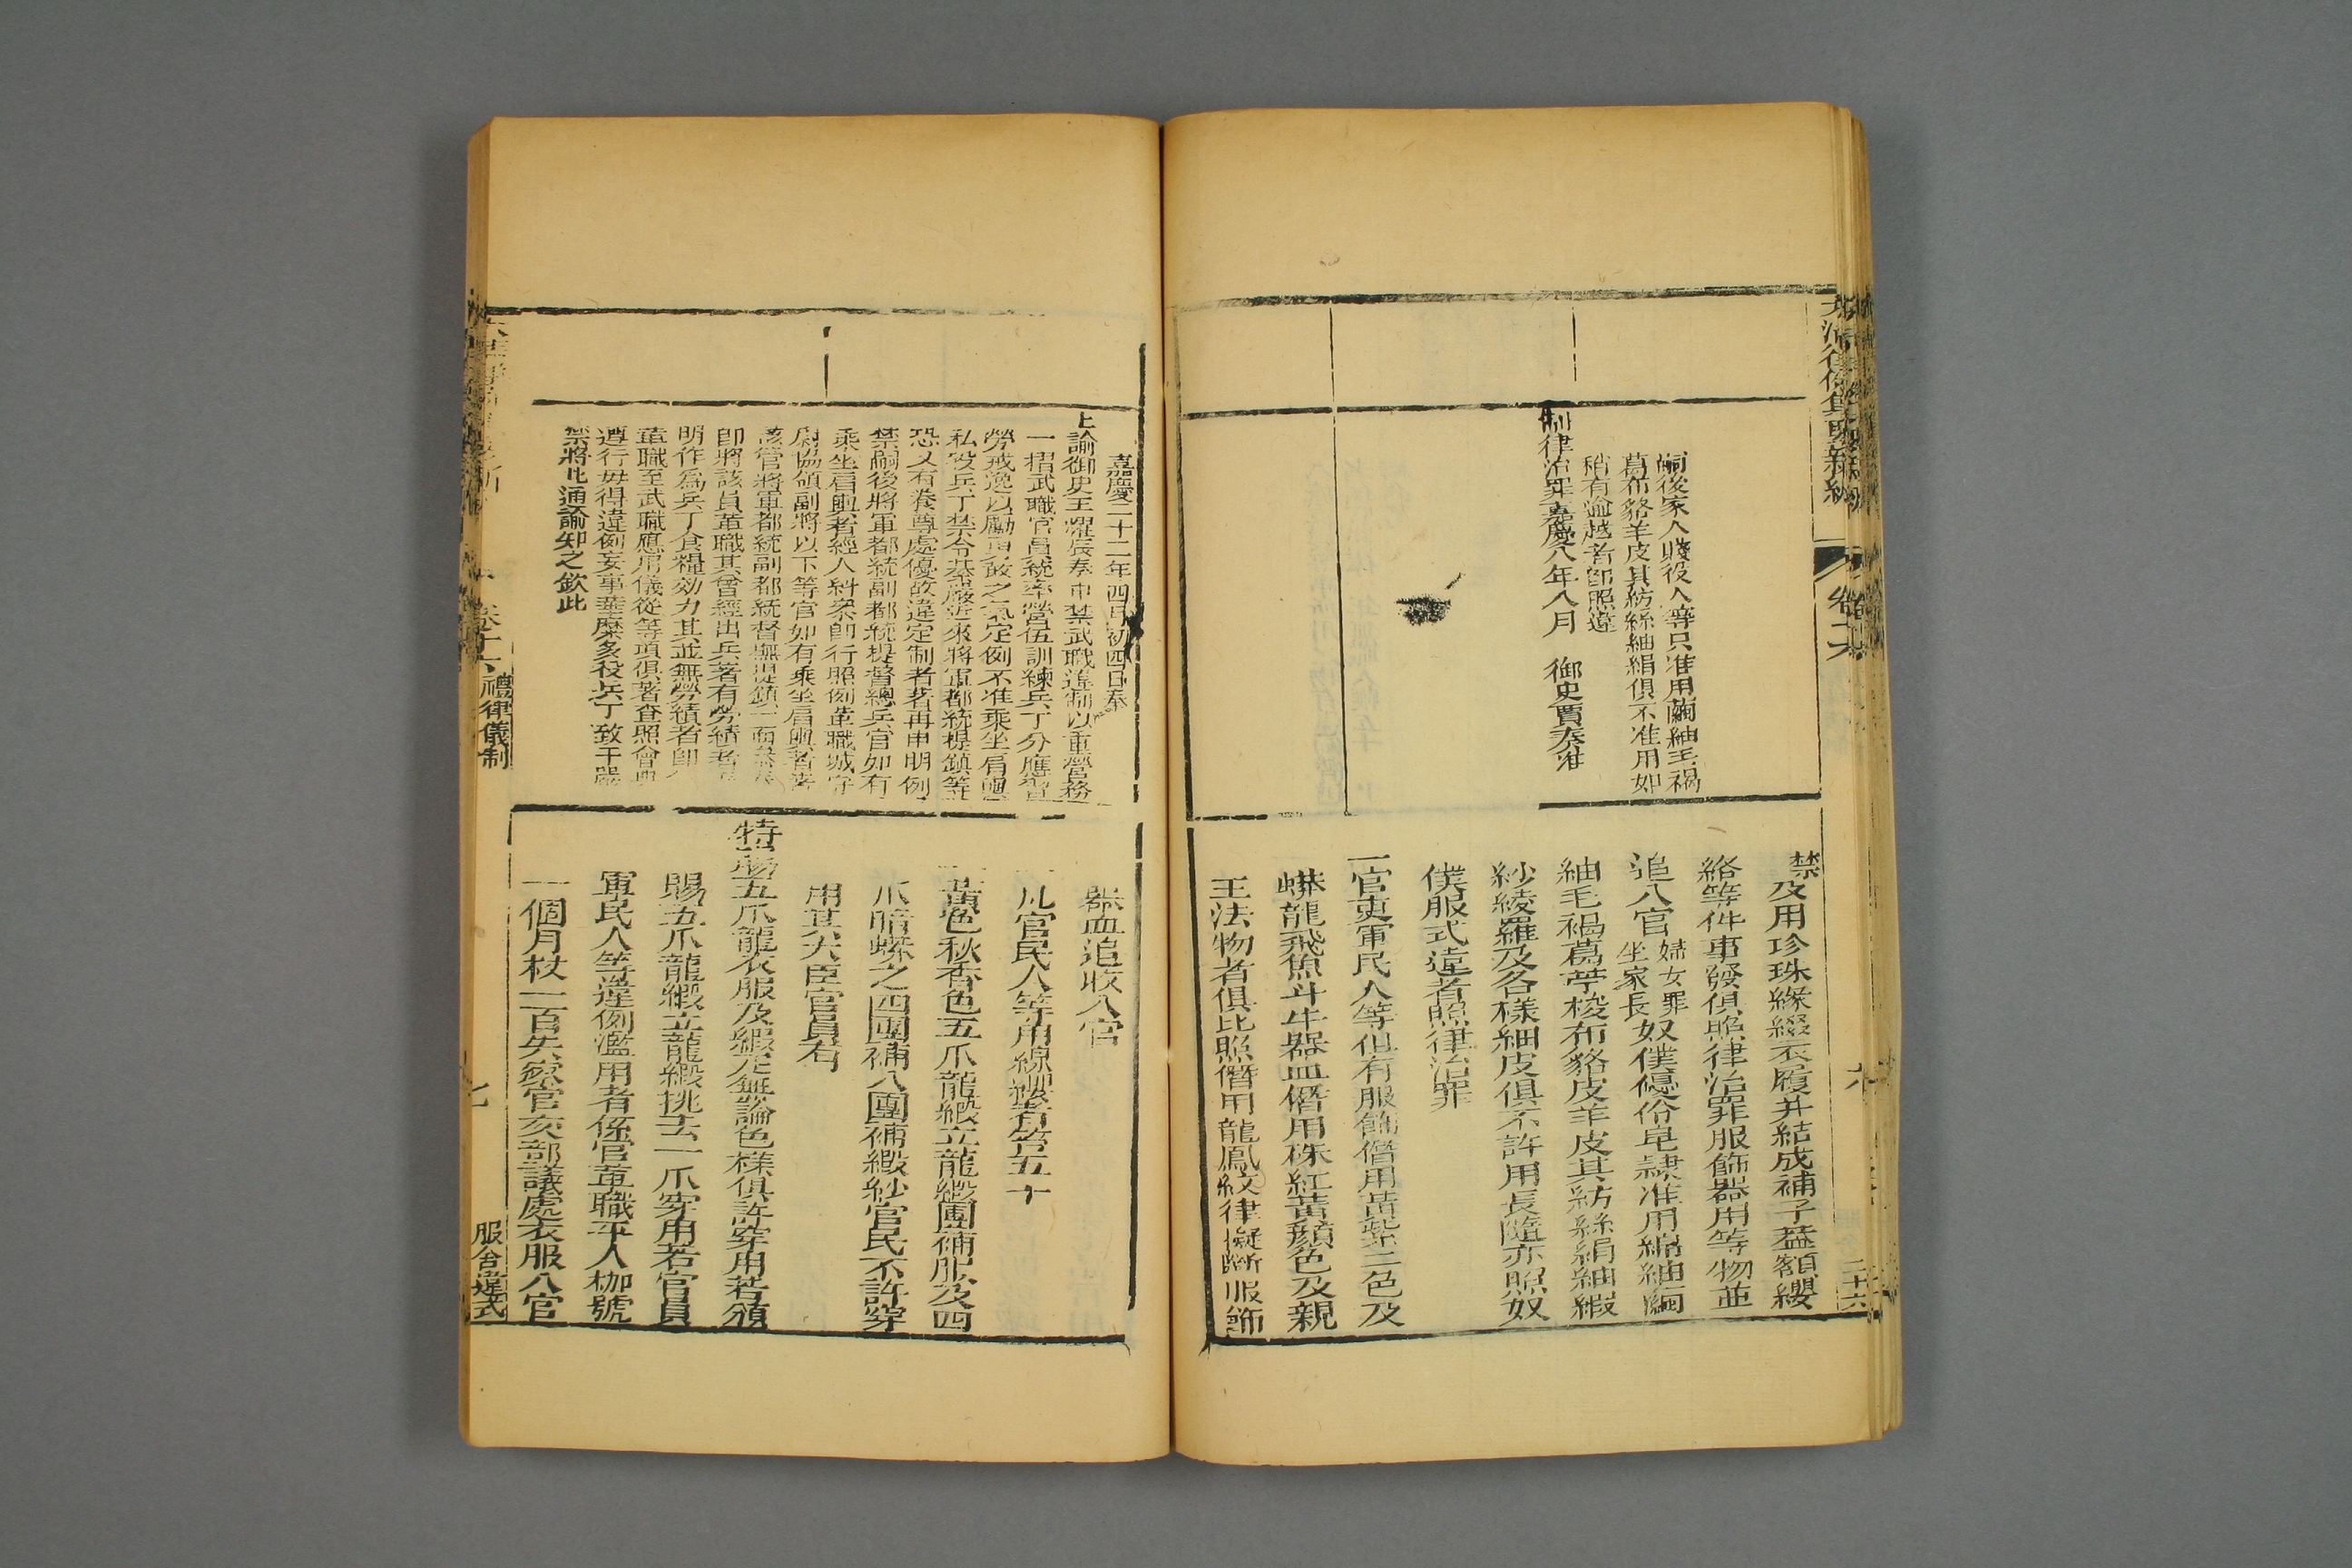 大清律例集要新編
嗣後家人賤役人等只准用繭紬毛褐
葛布貉羊皮其紡絲紬絹俱不准用如
稍有逾越者卽照違
制律治罪嘉慶八年八月 御史賈奏准
禁及用珍珠緣綴衣履并結成補子蓋額纓
絡等件事發俱照律治罪服飾器用等物並
追入官婦女罪坐家長奴僕優伶皂隸准用綿紬繭
紬毛褐葛苧梭布貉皮羊皮其紡絲絹紬緞
紗綾羅及各樣細皮俱不許用長隨亦照奴
僕服式違者照律治罪
一官吏軍民人等但有服飾僭用黃紫二色及
蟒龍飛魚斗牛器皿僭用硃紅黃顏色及親
王法物者俱比照僭用龍鳳文律擬斷服飾
二十六
嘉慶二十二年四月初四日奉
上諭御史王燿辰奏申禁武職違制以重營務
一摺武職官員統率營伍訓練兵丁分應習
勞戒逸以勵勇敢之氣定例不准乘坐肩輿
私役兵丁禁令綦嚴近來將軍都統提鎮等
恐又有養尊處優故違定制者著再申明例
禁嗣後將軍都統副都統提督總兵官如有
乘坐肩輿者經人糾叅卽行照例革職城守
尉協領副將以下等官如有乘坐肩輿者著
該管將軍都統副都統督撫提鎮一面叅奏
卽將該員革職其曾經出兵著有勞績者
明作爲兵丁食糧効力其並無勞績者卽
革職至武職應用儀從等項俱著查照會典
遵行毋得違例妄事華糜多役兵丁致干嚴
禁將此通諭知之欽此
器皿追收入官
一凡官民人等用線纓者笞五十
一黃色秋香色五爪龍緞立龍緞團補服及四
爪暗蟒之四團補八團補緞紗官民不許穿
用其大臣官員有
特賜五爪龍衣服及緞疋無論色樣俱許穿用若頒
賜五爪龍緞立龍緞挑去一爪穿用若官員
軍民人等違例濫用者係官革職平人枷號
一個月杖一百失察官交部議處衣服入官
卷十六 禮律儀制
七
服舍違式